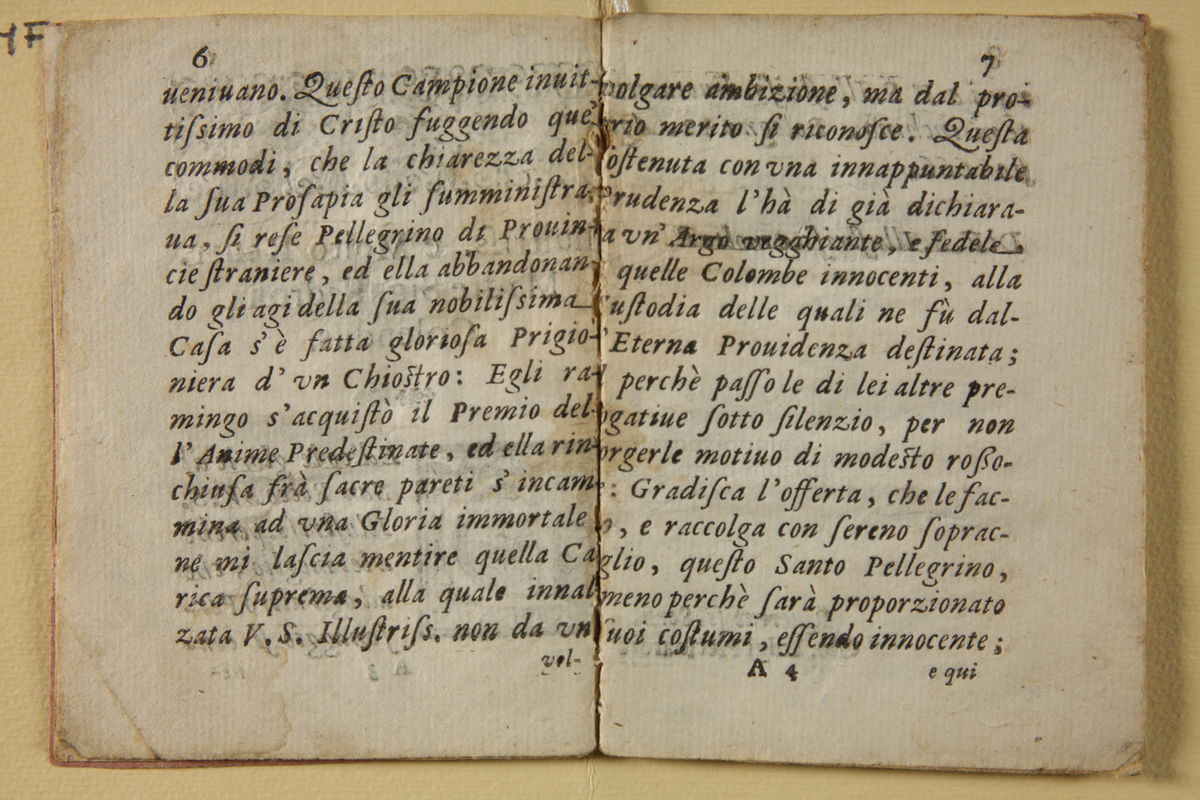 HF
6
ueniuano. Queſto Campione inuit-
tiſsimo di Criſto fuggendo que'
commodi, che la chiarezza del-
la ſua Proſapia gli ſumminiſtra-
ua, ſi reſe Pellegrino di Prouin-
cie ſtraniere, ed ella abbandonan-
do gli agi della ſua nobiliſsima
Caſa s'è fatta glorioſa Prigio-
niera d'vn Chioſtro: Egli ra-
mingo s'acquiſtò il Premio del-
l'Anime Predeſtinate, ed ella rin-
chiuſa frà ſacre pareti s'incam-
mina ad vna Gloria immortale
ne mi laſcia mentire quella Ca
rica ſuprema, alla quale innal
zata V. S. Illuſtriſs. non da vn
vol-
7
volgare ambizione, ma dal pro-
prio merito ſi riconoſce. Queſta
ſoſtenuta con vna innappuntabile
Prudenza l'hà di già dichiara-
a vn' Argo vegghiante, e fedele
quelle Colombe innocenti, alla
cuſtodia delle quali ne fù dal-
l'Eterna Prouidenza deſtinata;
perchè paſſo le di lei altre pre-
ogatiue ſotto ſilenzio, per non
orgerle motiuo di modeſto roßo-
: Gradiſca l'offerta, che le fac-
o, e raccolga con ſereno ſoprac-
glio, queſto Santo Pellegrino,
meno perchè ſarà proporzionato
ſuoi coſtumi, eſſendo innocente;
A 4
e qui